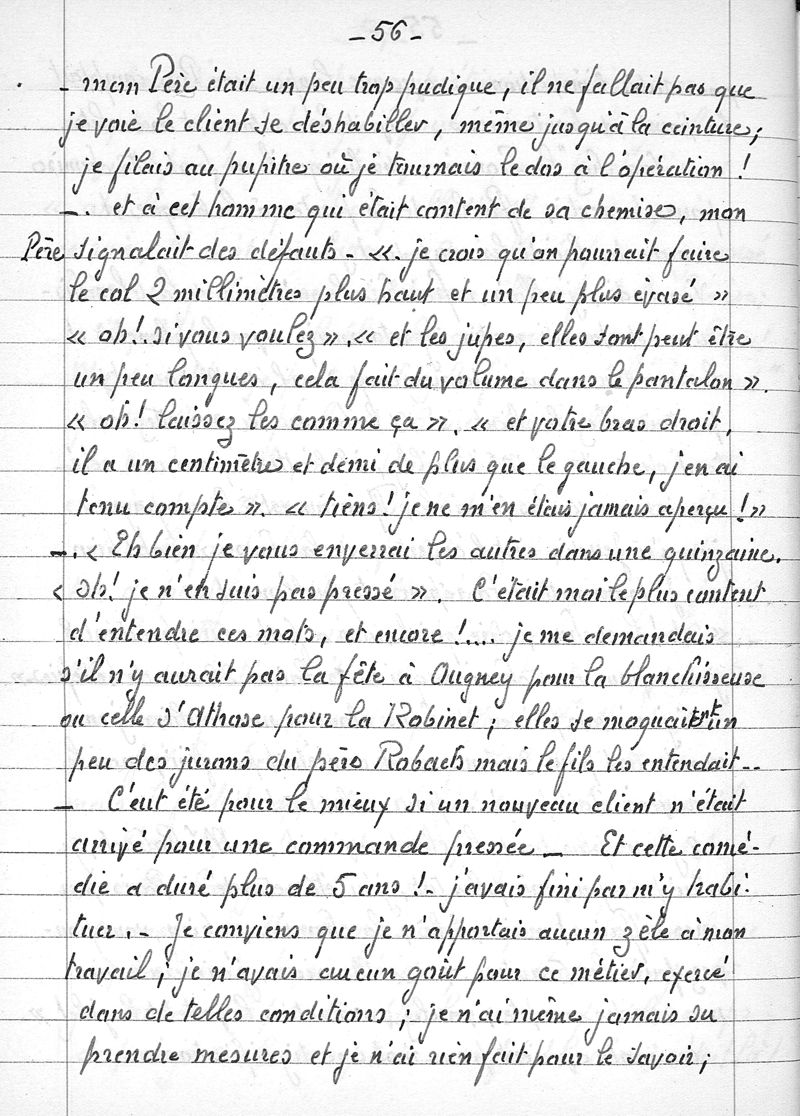 - 56 -
- mon Père était un peu trop pudique, il ne fallait pas que
je voie le client se déshabiller, même jusqu'à la ceinture,
je filais au pupitre où je tournais le dos à l'opération !
-. et à cet homme qui était content de sa chemise, mon
Père signalait des défauts - «. je crois qu'on pourrait faire
le col 2 millimètres plus haut et un peu plus évasé »
« oh !. si vous voulez ». « et les jupes, elles sont peut être
un peu longues, cela fait du volume dans le pantalon ».
« oh ! laissez les comme ça ». « et votre bras droit,
il a un centimètre et demi de plus que le gauche, j'en ai
tenu compte ». « tiens ! je ne m'en étais jamais aperçu ! »
-. « Eh bien je vous enverrai les autres dans une quinzaine.
« Oh ! je n'en suis pas pressé ». C'était moi le plus content
d'entendre ces mots, et encore !.... je me demandais
s'il n'y aurait pas la fête à Ougney pour la blanchisseuse
ou celle d'Athose pour la Robinet ; elles se moquaient un
peu des jurons du père Robaets mais le fils les entendait --
- C'eut été pour le mieux si un nouveau client n'était
arrivé pour une commande pressée - Et cette comé-
die a duré plus de 5 ans !- j'avais fini par m'y habi-
tuer. - Je conviens que je n'apportais aucun zèle à mon
travail ; je n'avais aucun goût pour ce métier, exercé
dans de telles conditions ; je n'ai même jamais su
prendre mesures et je n'ai rien fait pour le savoir ;